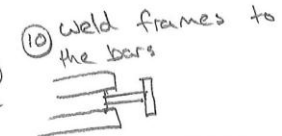 10 weld frames to
the bars